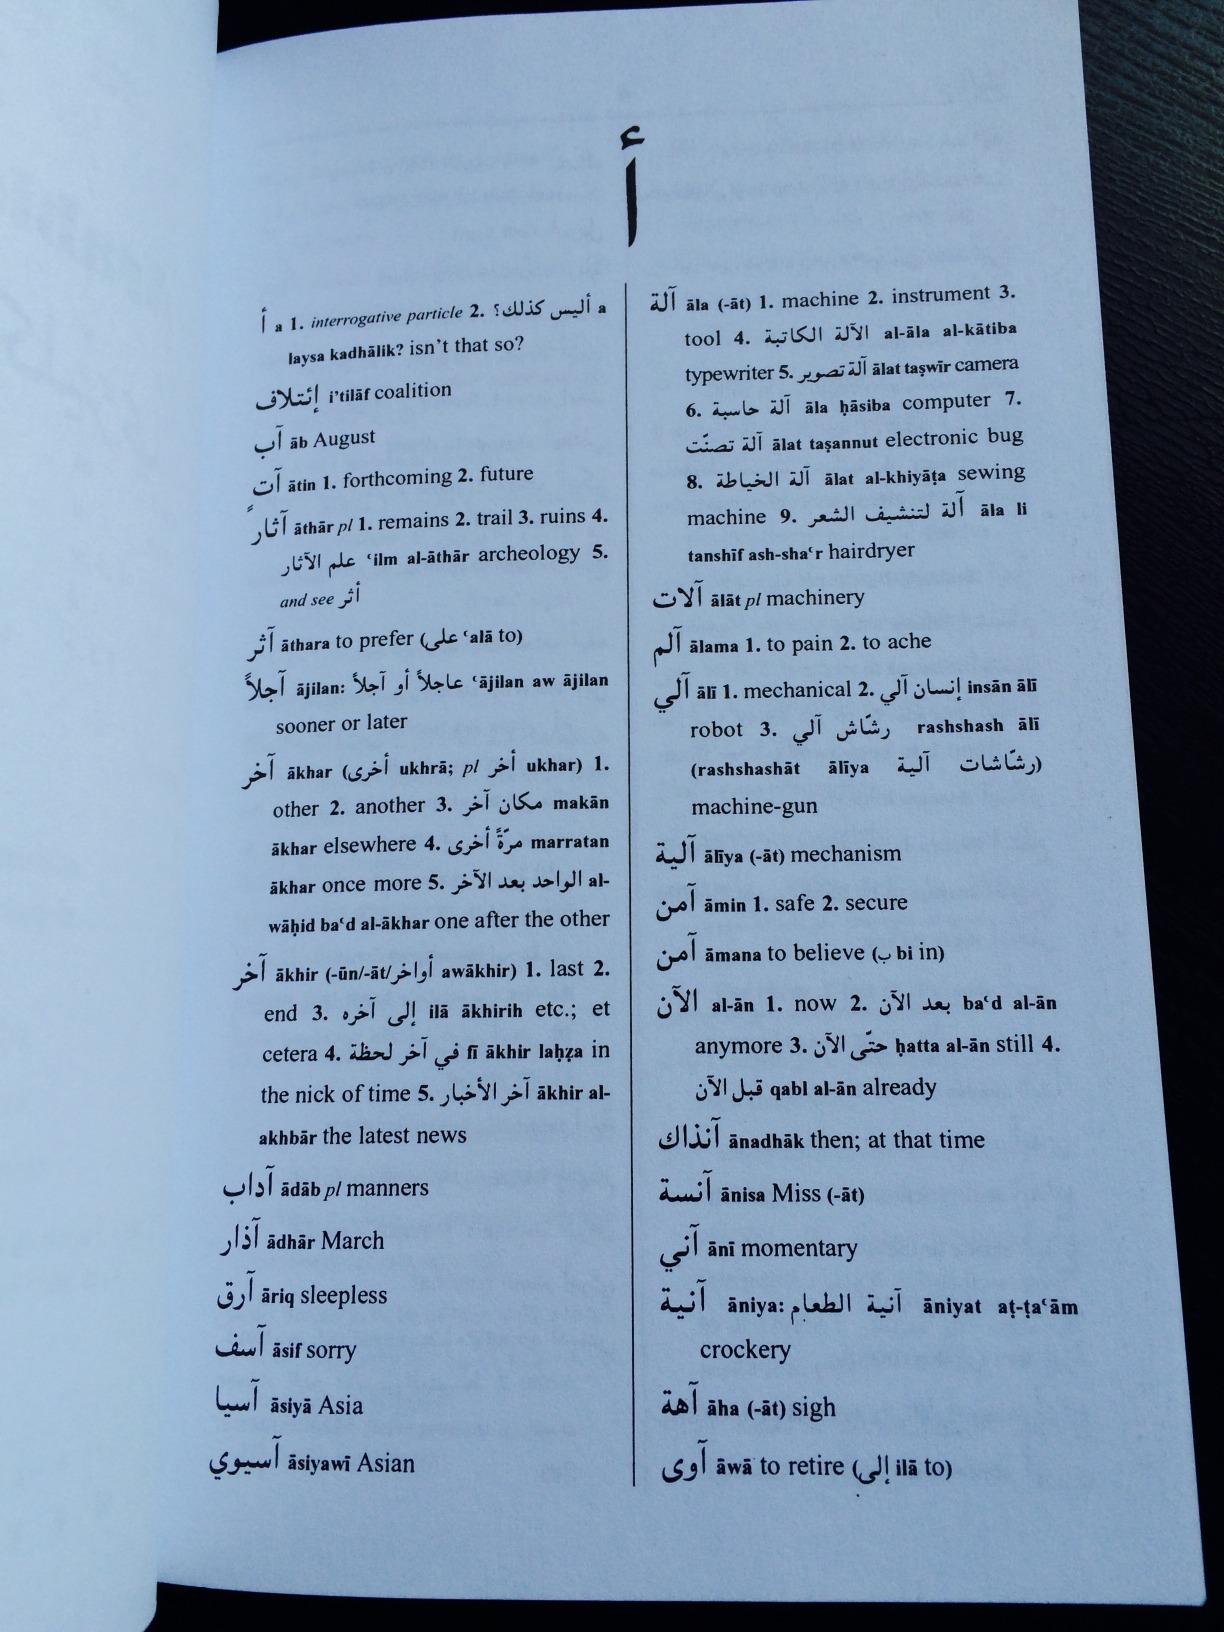 أ
أ a 1. interrogative particle 2. أليس كذلك؟ a
laysa kadhālik? isn't that so?
إئتلاف i'tilāf coalition
آب āb August
آت ātin 1. forthcoming 2. future
آثار āthār pl 1. remains 2. trail 3. ruins 4.
علم الآثار ʿilm al-āthār archeology 5.
and see أثر
آثر āthara to prefer (على ʿalā to)
آجلاً ājilan: عاجلاً أو آجلاً ʿājilan aw ājilan
sooner or later
آخر ākhar (أخرى ukhrā; pl أخر ukhar) 1.
other 2. another 3. مكان آخر makān
ākhar elsewhere 4. مرّةً أخرى marratan
ākhar once more 5. الواحد بعد الآخر al-
wāḥid baʿd al-ākhar one after the other
آخر ākhir (-ūn/-āt/أواخر awākhir) 1. last 2.
end 3. إلى آخره ilā ākhirih etc.; et
cetera 4. في آخر لحظة fī ākhir laḥẓa in
the nick of time 5. آخر الأخبار ākhir al-
akhbār the latest news
آداب ādāb pl manners
آذار ādhār March
آرق āriq sleepless
آسف āsif sorry
آسيا āsiyā Asia
آسيوي āsiyawī Asian
آلة āla (-āt) 1. machine 2. instrument 3.
tool 4. الآلة الكاتبة al-āla al-kātiba
typewriter 5. آلة تصوير ālat taṣwīr camera
6. آلة حاسبة āla ḥāsiba computer 7.
آلة تصنّت ālat taṣannut electronic bug
8. آلة الخياطة ālat al-khiyāṭa sewing
machine 9. آلة لتنشيف الشعر āla li
tanshīf ash-shaʿr hairdryer
آلات ālāt pl machinery
آلم ālama 1. to pain 2. to ache
آلي ālī 1. mechanical 2. إنسان آلي insān ālī
robot 3. رشّاش آلي rashshash ālī
(rashshashāt ālīya رشّاشات آلية)
machine-gun
آلية ālīya (-āt) mechanism
آمن āmin 1. safe 2. secure
آمن āmana to believe (ب bi in)
الآن al-ān 1. now 2. بعد الآن baʿd al-ān
anymore 3. حتّى الآن ḥatta al-ān still 4.
قبل الآن qabl al-ān already
آنذاك ānadhāk then; at that time
آنسة ānisa Miss (-āt)
آني ānī momentary
آنية āniya: آنية الطعام āniyat aṭ-ṭaʿām
crockery
آهة āha (-āt) sigh
آوى āwā to retire (إلى ilā to)